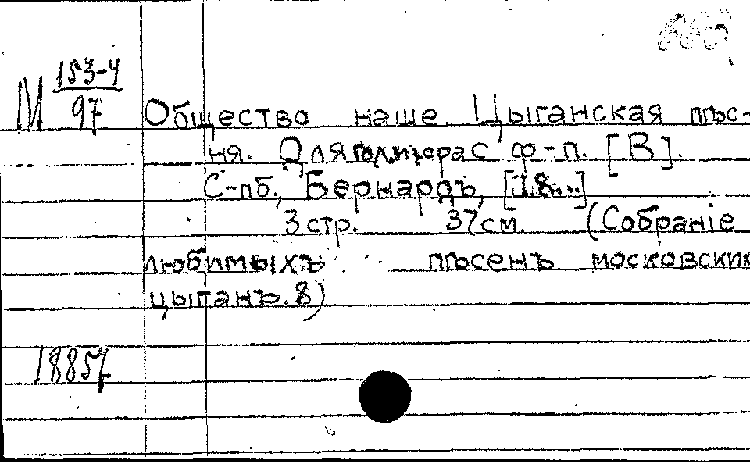 М 153-4
97
Общество наше. Цыганская пѣс-
ня. Для гол. и хора с ф-п. [В].
С-пб., Бернардъ, [18..]
3 стр. 37 см. (Собраніе
любимыхъ пѣсенъ московских
цыганъ. 8)
18857